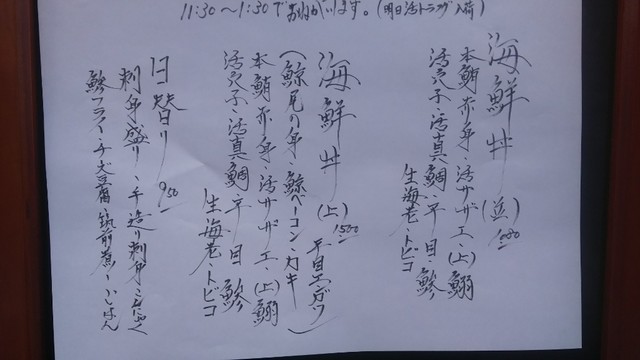 11:30〜1:30でおねがいします。(明日活トラフグ入荷)
海鮮丼(並)1080
本鮪赤身・活サザエ・(上)鰯
活穴子・活真鯛・平目・鯵
生海老・トビコ
海鮮丼(上)1500
(鯨尾の身・鯨ベーコン・カキ 平目エンガワ)
本鮪赤身・活サザエ・(上)鰯
活穴子・活真鯛・平目・鯵
生海老・トビコ
日替り 950
刺身盛り・手造り刺身こんにゃく
鯵フライ・手造豆腐・筑前煮・ごはん